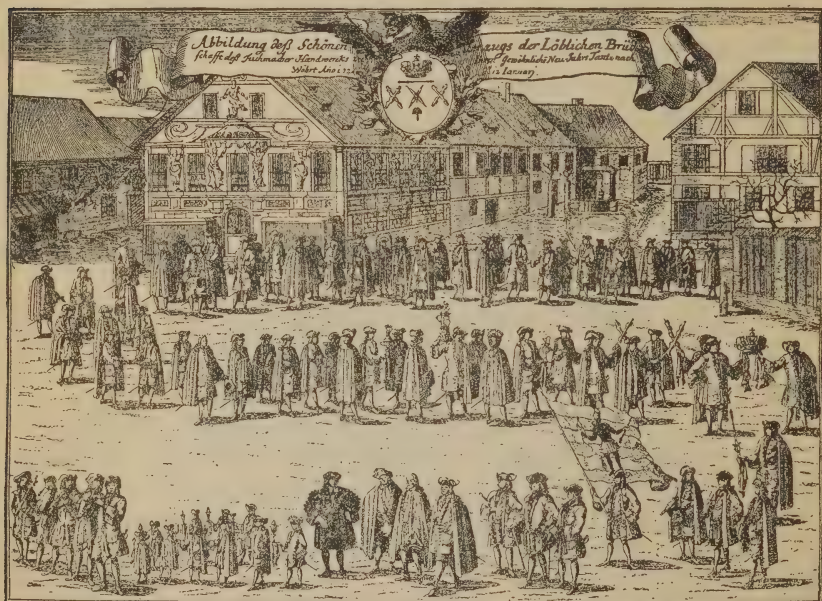 Abbildung deß Schönen zugs der Löblichen Brü
schafft deß Tuchmacher Handwercks Gewöhnliche Neu Jahrs
Wöhrt Ano 12 Januari